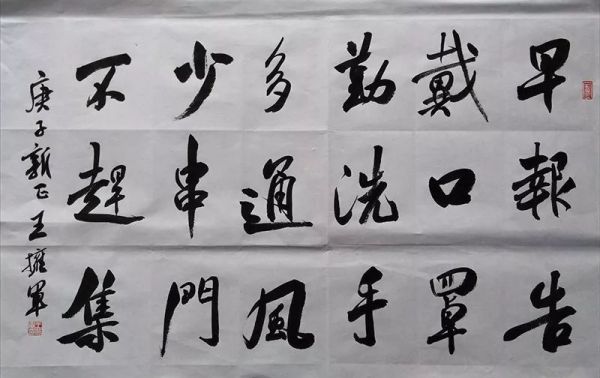 早報告
戴口罩
勤洗手
多通風
少串門
不趕集
庚子新正王擁軍